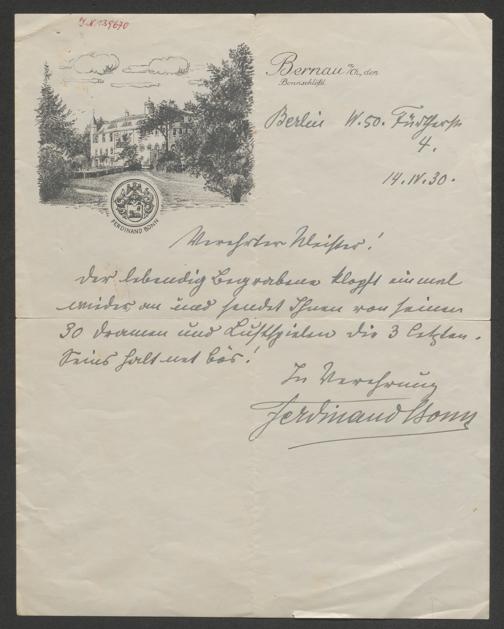 J.N. 139670
Bernau a/Ch., den
Bonnschlößl.
FERDINAND BONN
Berlin W.50. Fürtherstr
4.
14.IV.30.
Verehrter Meister!
Der lebendig Begrabene klopft einmal
wieder an und sendet Ihnen von seinen
30 Dramen und Lustspielen die 3 letzten.
Seins halt net bös!
In Verehrung
Ferdinand Bonn